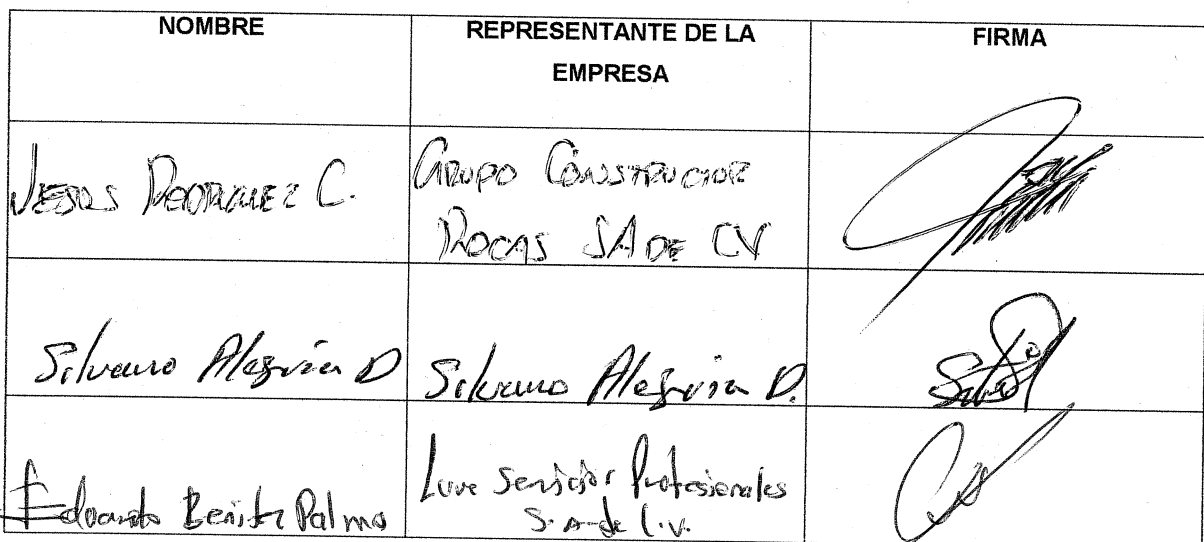 NOMBRE
REPRESENTANTE DE LA
EMPRESA
FIRMA
JESUS RODRIGUEZ C.
GRUPO CONSTRUCTOR
ROCAS SA DE CV
Silvano Alegria D
Silvano Alegria D.
Eduardo Benitez Palma
Luve Servicios Profesionales
S.A. de C.V.